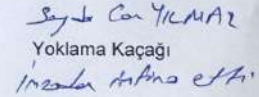 Can YILMAZ
Yoklama Kaçağı
imzadan imtina etti